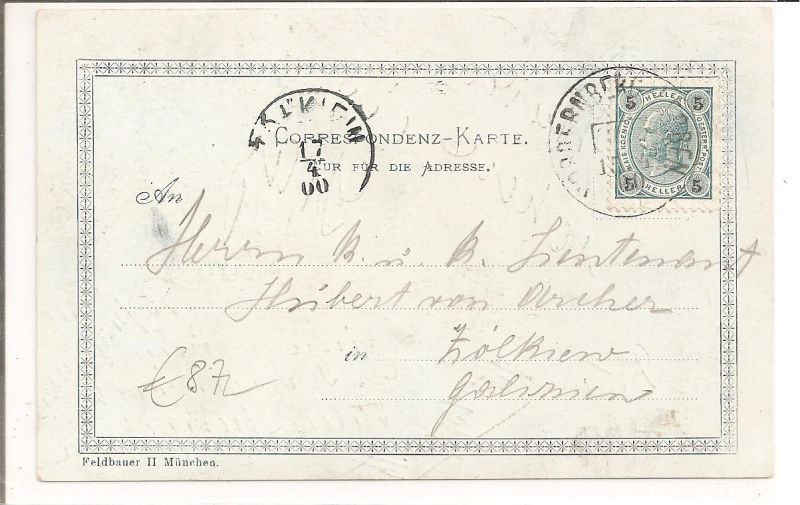 CORRESPONDENZ-KARTE.
NUR FÜR DIE ADRESSE.
17
4
00
5 HELLER 5
KAIS. KOENIGL. OESTERR. POST
5 HELLER 5
An
Herrn k. u. k. Lieutenant
Hubert von Archer
in Żółkiew
Galizien
€ 87,
Feldbauer II München.